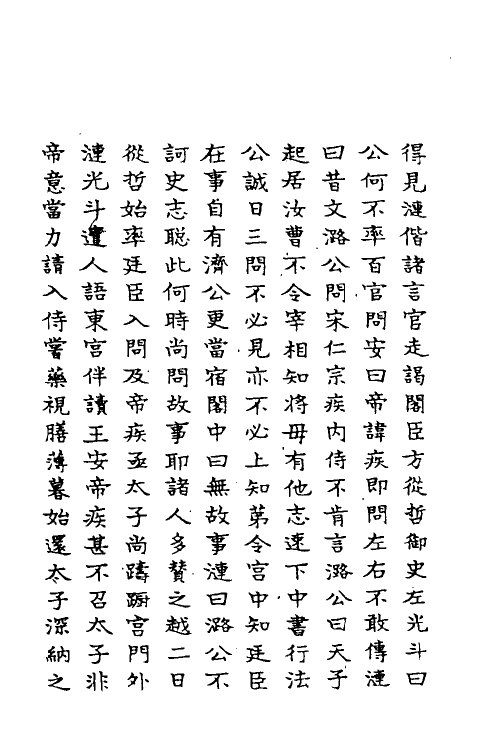 得見漣偕諸言官走謁閣臣方從哲御史左光斗曰
公何不率百官問安曰帝諱疾即問左右不敢傳漣
曰昔文潞公問宋仁宗疾内侍不肯言潞公曰天子
起居汝曹不令宰相知將毋有他志速下中書行法
公誠日三問不必見亦不必上知第令宮中知廷臣
在事自有濟公更當宿閣中曰無故事漣曰潞公不
訶史志聰此何時尚問故事耶諸人多贊之越二日
從哲始率廷臣入問及帝疾亟太子尚躊蹰宮門外
漣光斗遣人語東宮伴讀王安帝疾甚不召太子非
帝意當力請入侍嘗藥視膳薄暮始還太子深納之